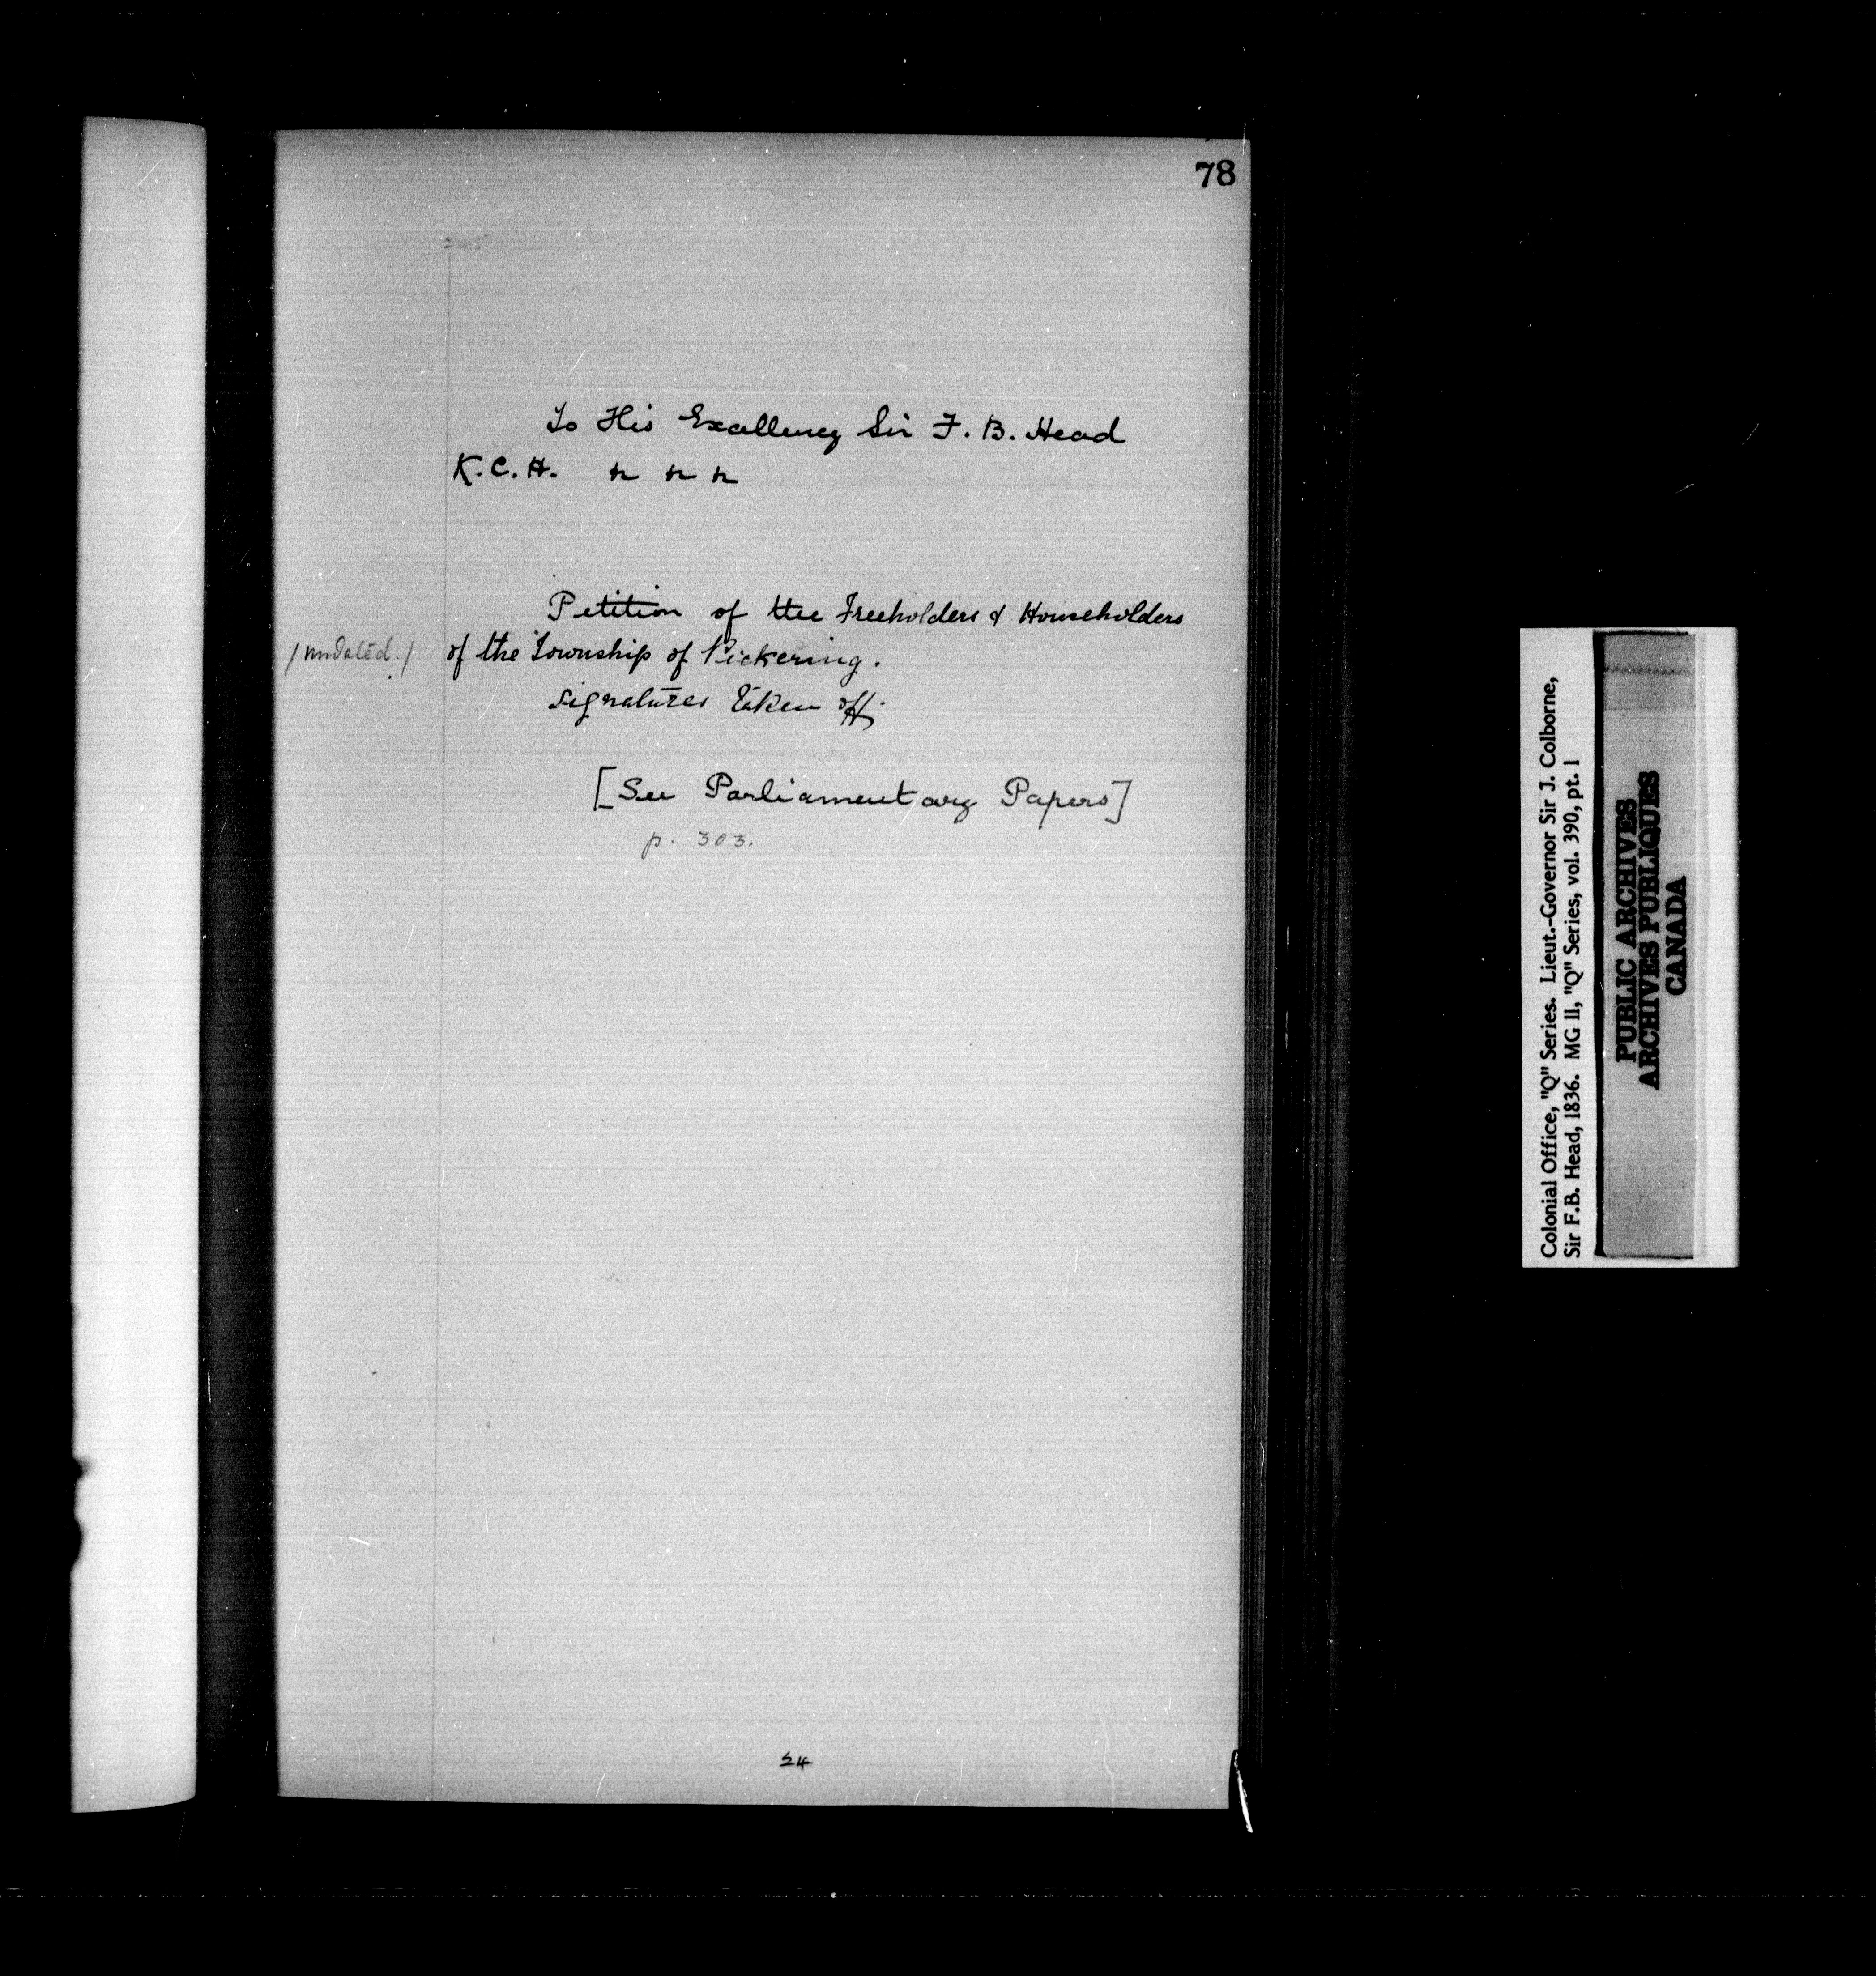 78
To His Excellency Sir F. B. Head
K.C.H. &c &c &c
Petition of the Freeholders & Householders
/undated./ of the Township of Pickering.
Signatures taken off.
[See Parliamentary Papers]
p. 303.
24
Colonial Office, "Q" Series. Lieut.-Governor Sir J. Colborne,
Sir F.B. Head, 1836. MG 11, "Q" Series, vol. 390, pt. 1
PUBLIC ARCHIVES
ARCHIVES PUBLIQUES
CANADA